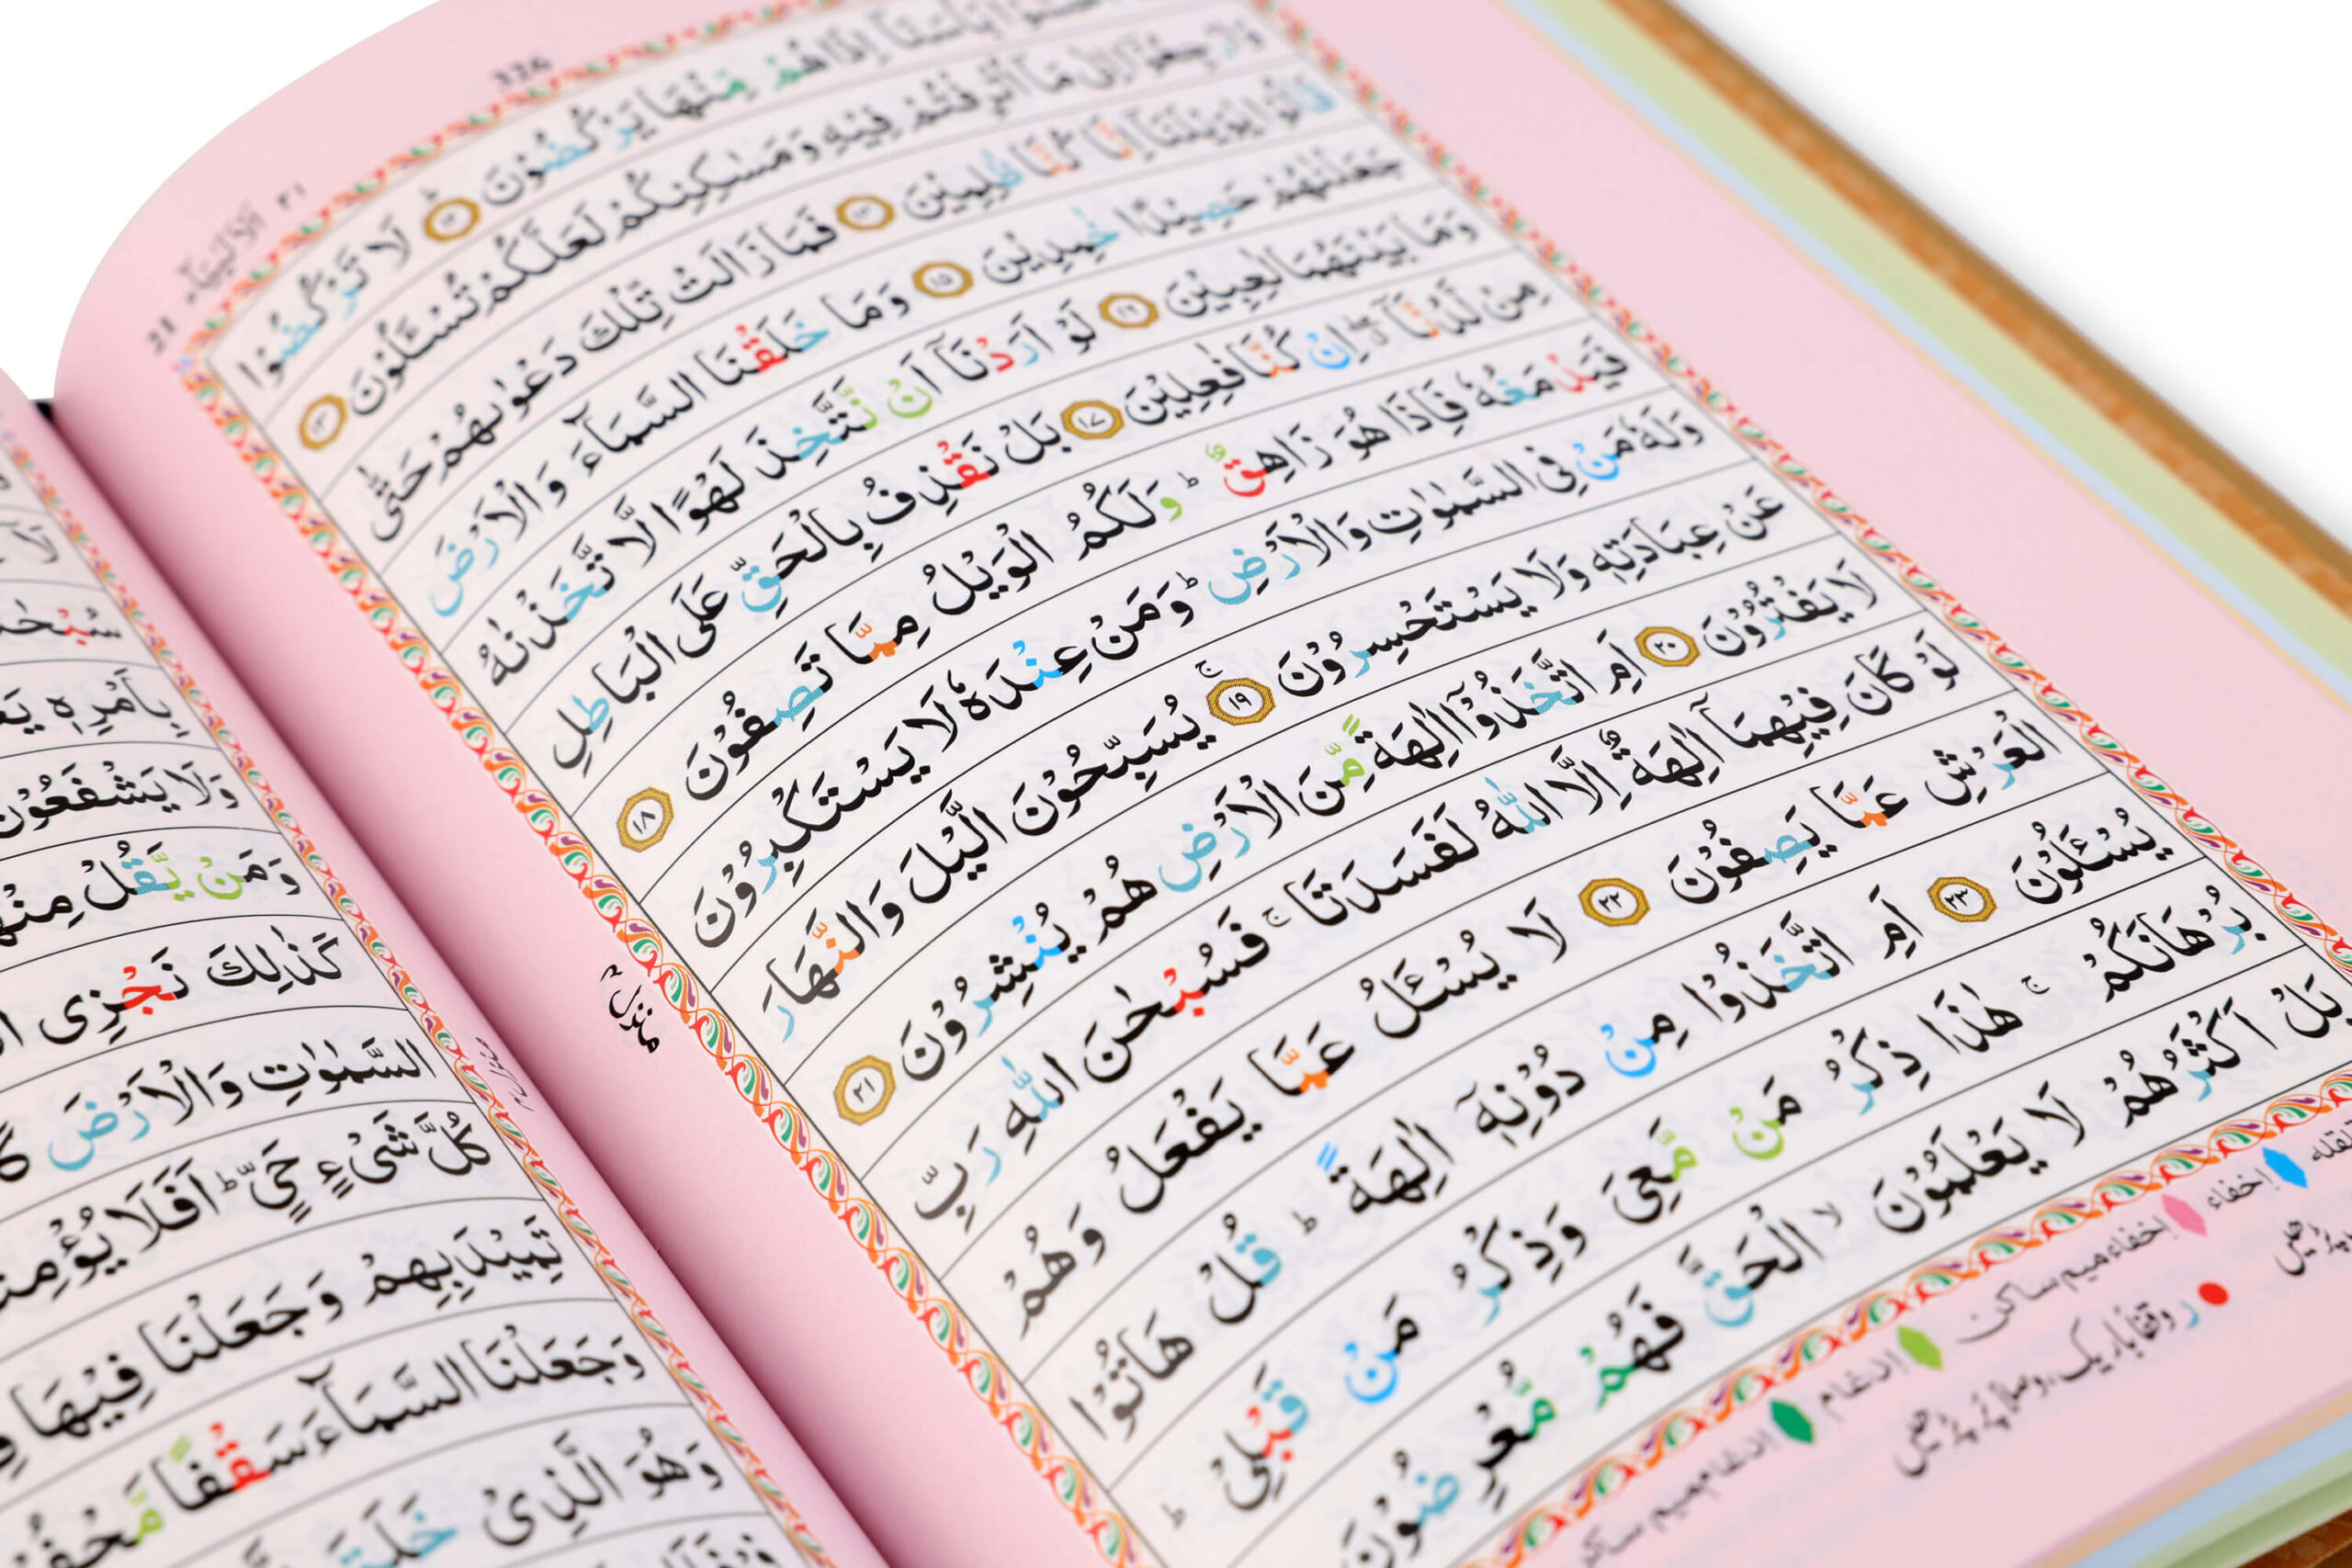 ٢١ اَلْاَنْۢبِيَآء
326
يَاْسَنَاۤ اِذَا هُمْ مِّنْهَا يَرْكُضُوْنَ ؕ ۱۲ لَا تَرْكُضُوْا
وَارْجِعُوْۤا اِلٰى مَاۤ اُتْرِفْتُمْ فِيْهِ وَمَسٰكِنِكُمْ لَعَلَّكُمْ تُسْـَٔلُوْنَ ۱۳
قَالُوْا يٰوَيْلَنَاۤ اِنَّا كُنَّا ظٰلِمِيْنَ ۱۴ فَمَا زَالَتْ تِّلْكَ دَعْوٰىهُمْ حَتّٰى
جَعَلْنٰهُمْ حَصِيْدًا خٰمِدِيْنَ ۱۵ وَمَا خَلَقْنَا السَّمَآءَ وَالْاَرْضَ
وَمَا بَيْنَهُمَا لٰعِبِيْنَ ۱۶ لَوْ اَرَدْنَاۤ اَنْ نَّتَّخِذَ لَهْوًا لَّا تَّخَذْنٰهُ
مِنْ لَّدُنَّاۤ ۖۗ اِنْ كُنَّا فٰعِلِيْنَ ۱۷ بَلْ نَقْذِفُ بِالْحَقِّ عَلَى الْبَاطِلِ
فَيَدْمَغُهٗ فَاِذَا هُوَ زَاهِقٌ ؕ وَلَكُمُ الْوَيْلُ مِمَّا تَصِفُوْنَ ۱۸
وَلَهٗ مَنْ فِى السَّمٰوٰتِ وَالْاَرْضِ ؕ وَمَنْ عِنْدَهٗ لَا يَسْتَكْبِرُوْنَ
عَنْ عِبَادَتِهٖ وَلَا يَسْتَحْسِرُوْنَ ۚ ۱۹ يُسَبِّحُوْنَ الَّيْلَ وَالنَّهَارَ
لَا يَفْتُرُوْنَ ۲۰ اَمِ اتَّخَذُوْۤا اٰلِهَةً مِّنَ الْاَرْضِ هُمْ يُنْشِرُوْنَ ۲۱
لَوْ كَانَ فِيْهِمَاۤ اٰلِهَةٌ اِلَّا اللّٰهُ لَفَسَدَتَا ۚ فَسُبْحٰنَ اللّٰهِ رَبِّ
الْعَرْشِ عَمَّا يَصِفُوْنَ ۲۲ لَا يُسْـَٔلُ عَمَّا يَفْعَلُ وَهُمْ
يُسْـَٔلُوْنَ ۲۳ اَمِ اتَّخَذُوْا مِنْ دُوْنِهٖۤ اٰلِهَةً ؕ قُلْ هَاتُوْا
بُرْهَانَكُمْ ۚ هٰذَا ذِكْرُ مَنْ مَّعِىَ وَذِكْرُ مَنْ قَبْلِىْ ؕ
بَلْ اَكْثَرُهُمْ لَا يَعْلَمُوْنَ ۙ الْحَقَّ فَهُمْ مُّعْرِضُوْنَ
منزل ۴
إخفاء إخفاء ميم ساكن الادغام الادغام ميم ساكن
ر وقفاً باریک، وصلاً پُر پڑھیں
سُبْحٰ
بِاَمْرِهٖ
وَلَا يَشْفَعُوْنَ
وَمَنْ يَّقُلْ مِنْهُ
كَذٰلِكَ نَجْزِى
السَّمٰوٰتِ وَالْاَرْضَ
كُلَّ شَىْءٍ حَىٍّ ؕ اَفَلَا يُؤْمِنُ
تَمِيْدَ بِهِمْ وَجَعَلْنَا فِيْهَا
وَجَعَلْنَا السَّمَآءَ سَقْفًا مَّحْفُوْ
وَهُوَ الَّذِىْ خَلَقَ